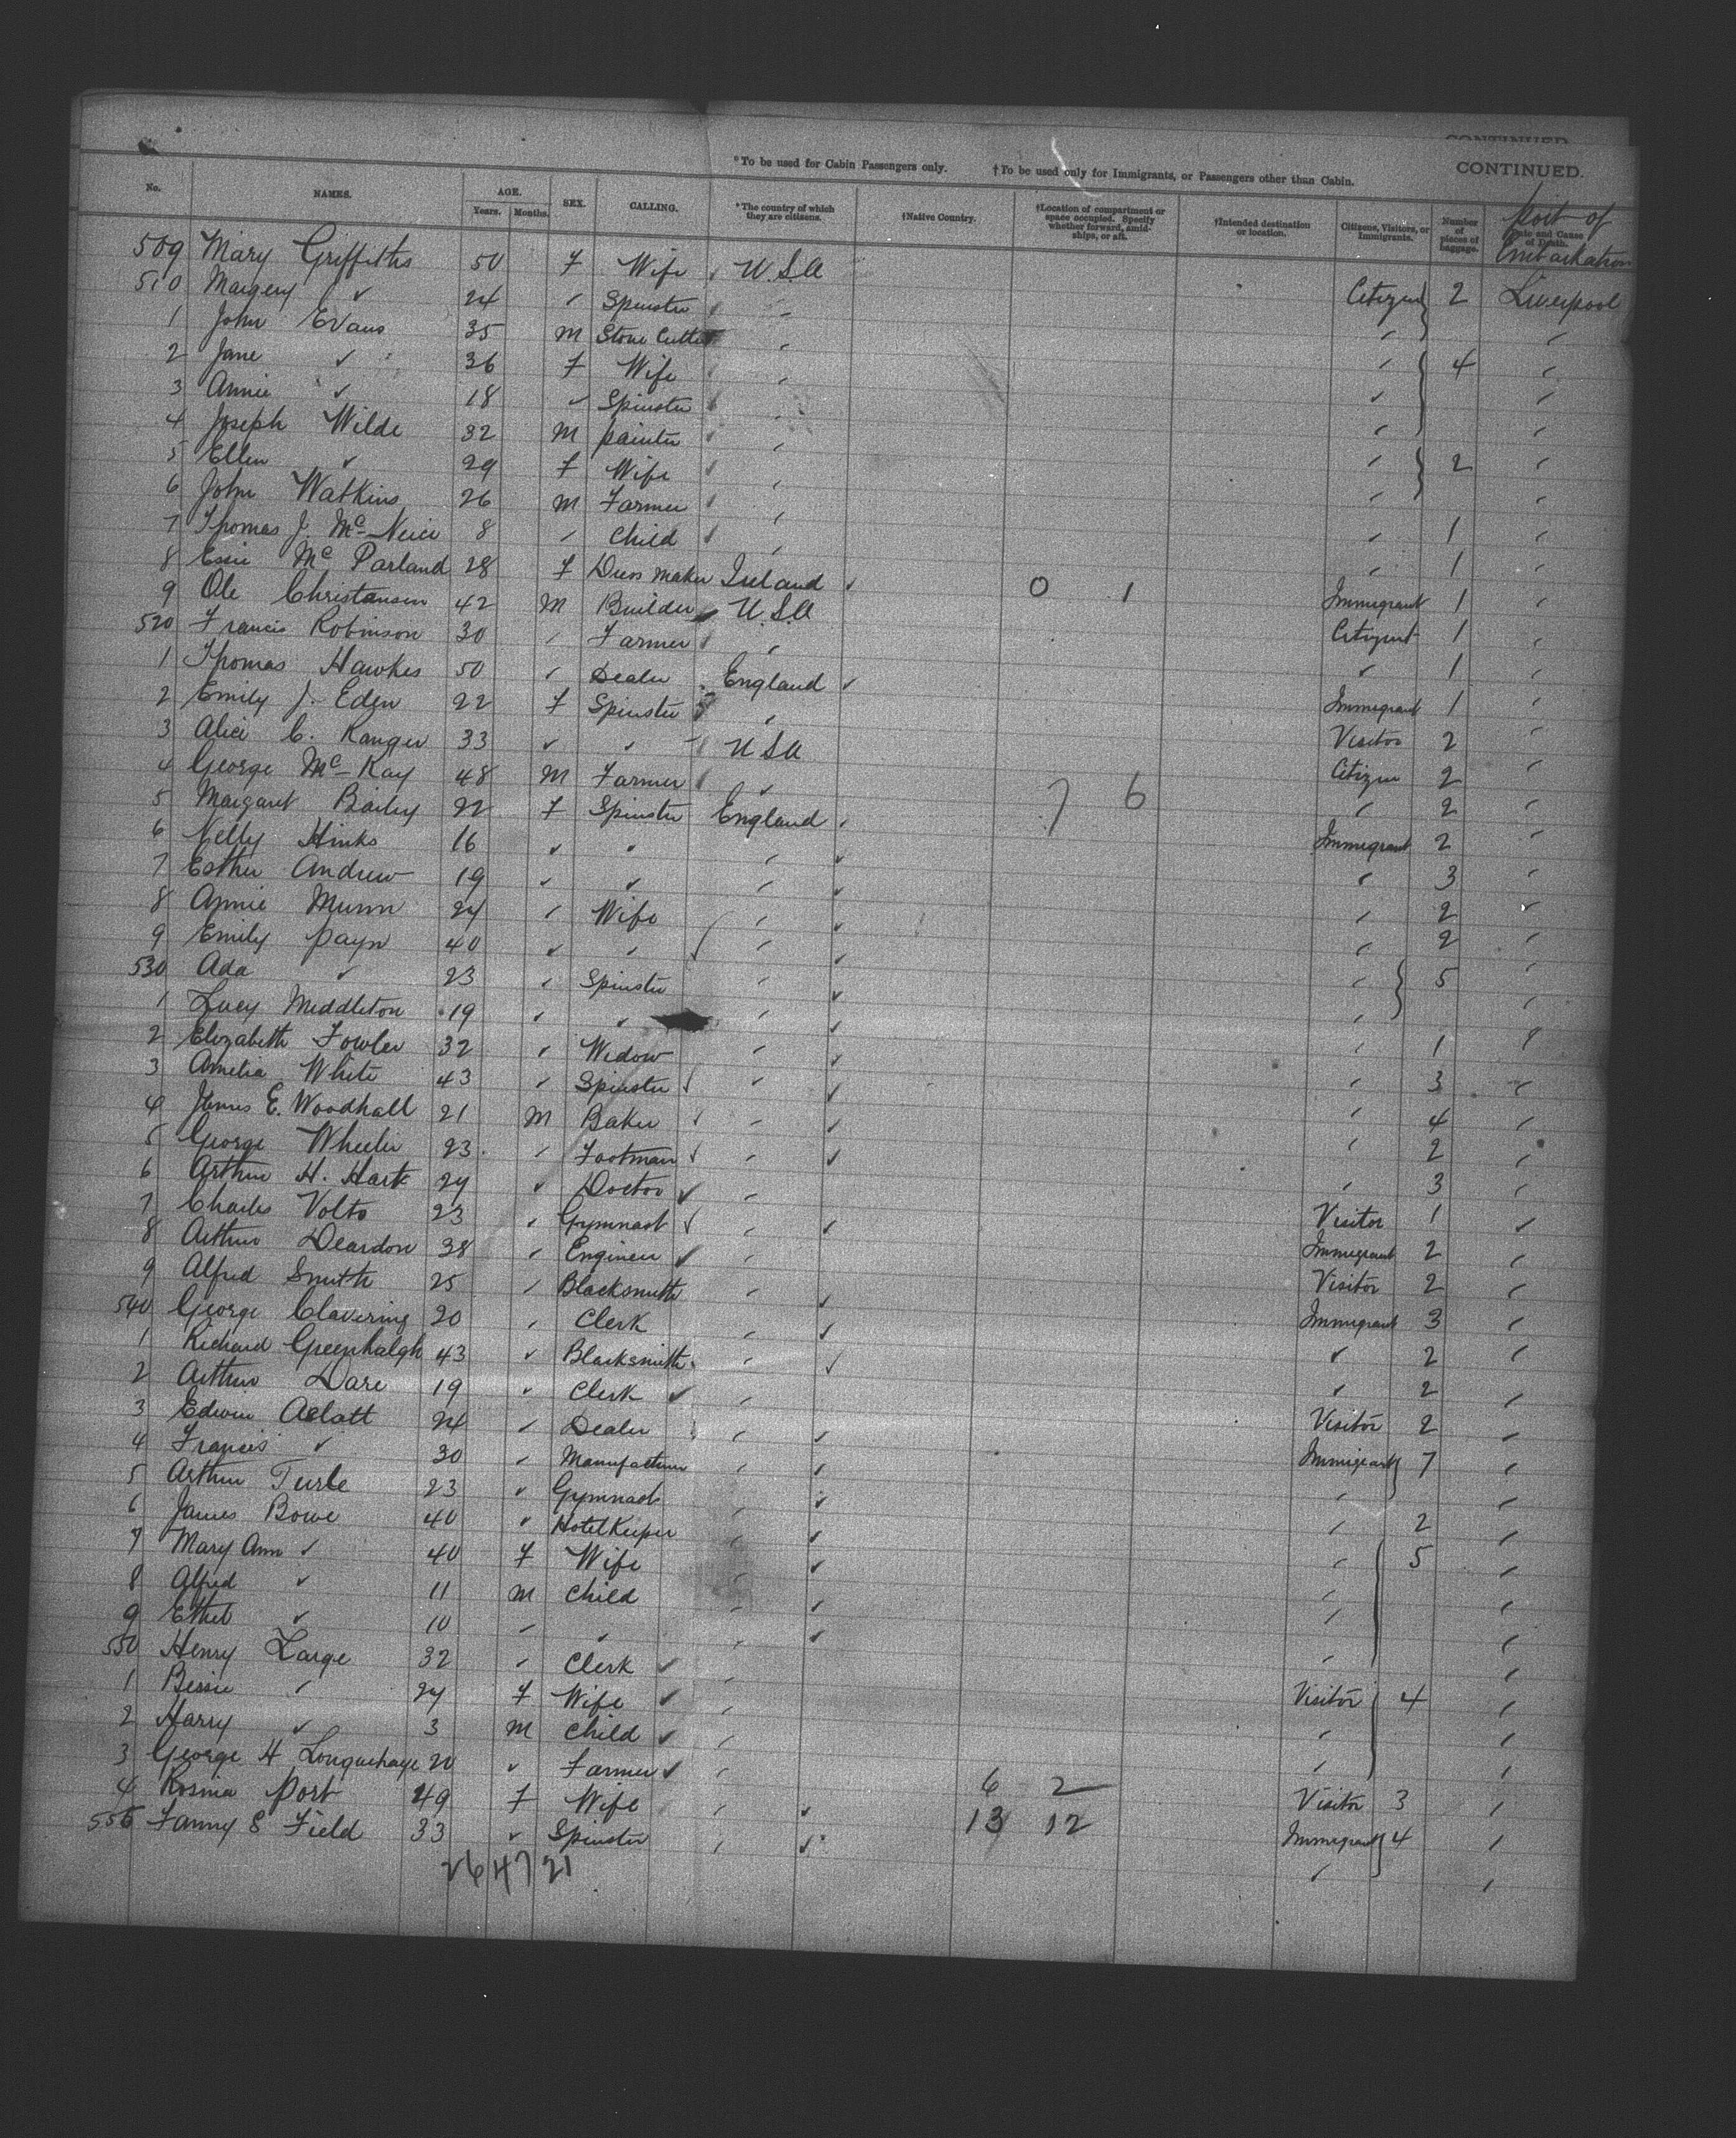 CONTINUED.
*To be used for Cabin Passengers only. †To be used only for Immigrants, or Passengers other than Cabin. CONTINUED.
No. NAMES. AGE. Years. Months. SEX. CALLING. *The country of which they are citizens. †Native Country. †Location of compartment or space occupied. Specify whether forward, amidships, or aft. †Intended destination or location. Citizens, Visitors, or Immigrants. Number of pieces of baggage. Date and Cause of Death. Port of Embarkation
509 Mary Griffiths 50 F Wife U.S.A Citizen 2 Liverpool
510 Margery " 24 " Spinster " " "
1 John Evans 35 M Stone Cutter " " 4 "
2 Jane " 36 F Wife " " "
3 Annie " 18 " Spinster " " "
4 Joseph Wilde 32 M painter " " 2 "
5 Ellen " 29 F Wife " " "
6 John Watkins 26 M Farmer " " 1 "
7 Thomas J. McNeice 8 " Child " " 1 "
8 Essie McParland 28 F Dress Maker Ireland 0 1 Immigrant 1 "
9 Ole Christansen 42 M Builder U.S.A Citizen 1 "
520 Francis Robinson 30 " Farmer " " 1 "
1 Thomas Hawkes 50 " Dealer England Immigrant 1 "
2 Emily J. Eden 22 F Spinster " Visitor 2 "
3 Alice C. Ranger 33 " " U.S.A Citizen 2 "
4 George McKay 48 M Farmer " 7 6 " 2 "
5 Margaret Bailey 22 F Spinster England Immigrant 2 "
6 Nelly Hinks 16 " " " " 3 "
7 Esther Andrew 19 " " " " 2 "
8 Annie Munn 24 " Wife " " 2 "
9 Emily Payn 40 " " " " 5 "
530 Ada " 23 " Spinster " " "
1 Lucy Middleton 19 " " " " 1 "
2 Elizabeth Fowler 32 " Widow " " 3 "
3 Amelia White 43 " Spinster " " 4 "
4 James E. Woodhall 21 M Baker " " 2 "
5 George Wheeler 23 " Footman " " 3 "
6 Arthur H. Hart 24 " Doctor " Visitor 1 "
7 Charles Volto 23 " Gymnast " Immigrant 2 "
8 Arthur Deardon 38 " Engineer " Visitor 2 "
9 Alfred Smith 25 " Blacksmith " Immigrant 3 "
540 George Clavering 20 " Clerk " " 2 "
1 Richard Greenhalgh 43 " Blacksmith " " 2 "
2 Arthur Dare 19 " Clerk " Visitor 2 "
3 Edwin Aslatt 24 " Dealer " Immigrant 7 "
4 Francis " 30 " Manufacturer " " "
5 Arthur Turle 23 " Gymnast " " 2 "
6 James Bowe 40 " Hotel Keeper " " 5 "
7 Mary Ann " 40 F Wife " " "
8 Alfred " 11 M Child " " "
9 Ethel " 10 " " " " "
550 Henry Large 32 " Clerk " Visitor 4 "
1 Bessie " 24 F Wife " " "
2 Harry " 3 M Child " " "
3 George H Longuehaye 20 " Farmer " 6 2 Visitor 3 "
4 Rosina Port 49 F Wife " 13 12 Immigrant 4 "
555 Fanny E Field 33 " Spinster " " "
26 47 21